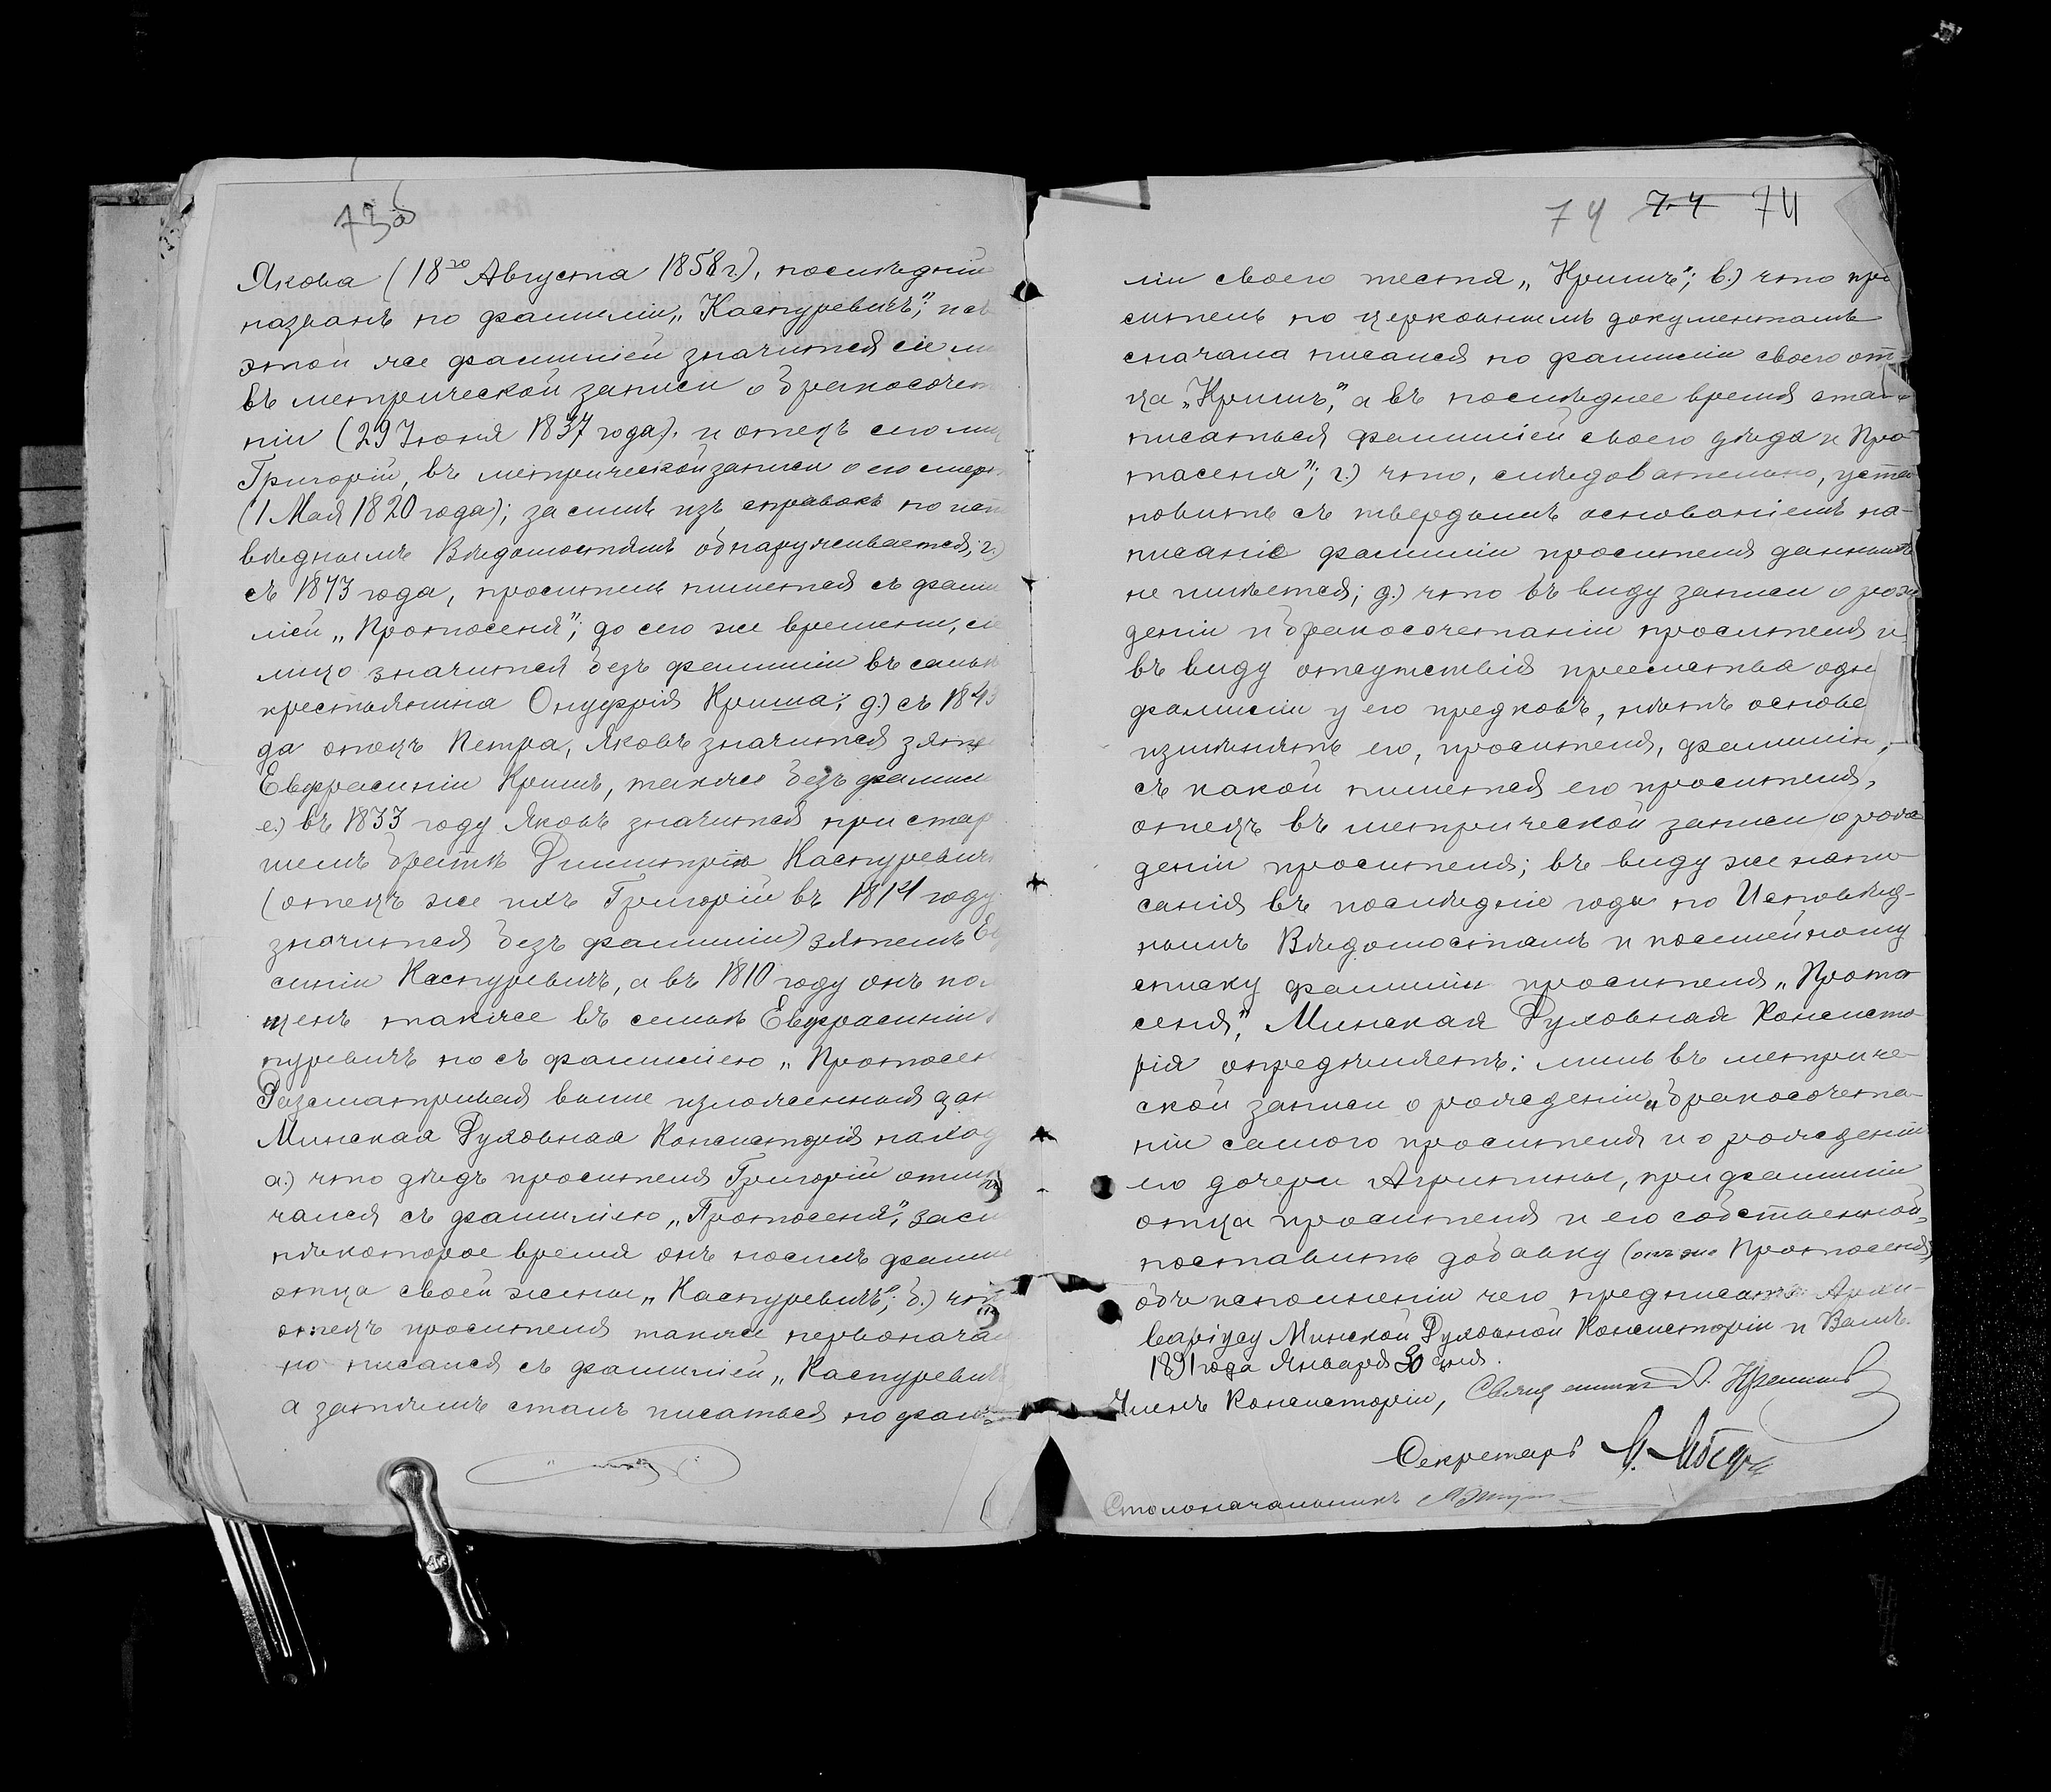 73об
Якова (18го Августа 1858 г.), послѣдній
названъ по фамиліи „Каспуревичъ“; и съ
этой же фамиліей значится сіе ли
въ метрической записи о бракосочета
ніи (29 Іюня 1837 года). и отецъ сего лиц
Григорій, въ метрической записи о его смерт
(1 Мая 1820 года); за симъ изъ справокъ по испо
вѣднымъ Вѣдомостямъ обнаруживается, г.)
съ 1873 года, проситель пишется съ фами
ліей „Протосеня“; до сего же времени, сіе
лицо значится безъ фамиліи въ семьѣ
крестьянина Онуфрія Криша; д.) съ 1843
да отецъ Петра, Яковъ значится зятем
Евфрасиніи Кришъ, также безъ фамилі
е.) въ 1833 году Яковъ значится при стар
шемъ братѣ Димитріи Каспуревичъ
(отецъ же ихъ Григорій въ 1814 году
значится безъ фамиліи) зятемъ Ев
синіи Каспуревичъ, а въ 1810 году онъ по
щенъ также въ семьѣ Евфрасиніи
пуревичъ но съ фамиліею „Протосен
Разсматривая выше изложенныя дан
Минская Духовная Консисторія наход
а.) что дѣдъ просителя Григорій отли
чался съ фамиліею „Протосеня“, засим
нѣкоторое время онъ носилъ фамил
отца своей жены „Каспуревичъ“; б.) что
отецъ просителя также первонача
но писался съ фамиліей „Каспуревич
а затѣмъ сталъ писаться по фами=
74 74 74
ліи своего тестя „Кришъ“; в.) что про
ситель по церковнымъ документамъ
сначала писался по фамиліи своего от=
ца „Кришъ“, а въ послѣднее время стал
писаться фамиліей своего дѣда „Про
тасеня“; г.) что, слѣдовательно, уста
новить съ твердымъ основаніемъ на-
писаніе фамиліи просителя данныхъ
не имѣется; д.) что въ виду записи о рож
деніи и бракосочетаніи просителя и
въ виду отсутствія преемства одн
фамиліи у его предковъ, нѣтъ основа
измѣнять его, просителя, фамилію,
съ какой пишется его просителя,
отецъ въ метрической записи о рож
деніи просителя; въ виду же напи
санія въ послѣдніе года по Исповѣд-
нымъ Вѣдомостямъ и посемейному
списку фамиліи просителя „Прото
сеня“, Минская Духовная Консисто
рія опредѣляетъ: лишь въ метриче-
ской записи о рожденіи и бракосочета-
ніи самого просителя и о рожденіи
его дочери Агрипины, при фамиліи
отца просителя и его собственной,
поставить добавку (онъ же Протосеня)
объ исполненіи чего предписать Архи-
варіусу Минской Духовной Консисторіи и Вамъ.
1891 года Января 30 дня.
Членъ Консисторіи, Священникъ
Секретарь
Столоначальникъ